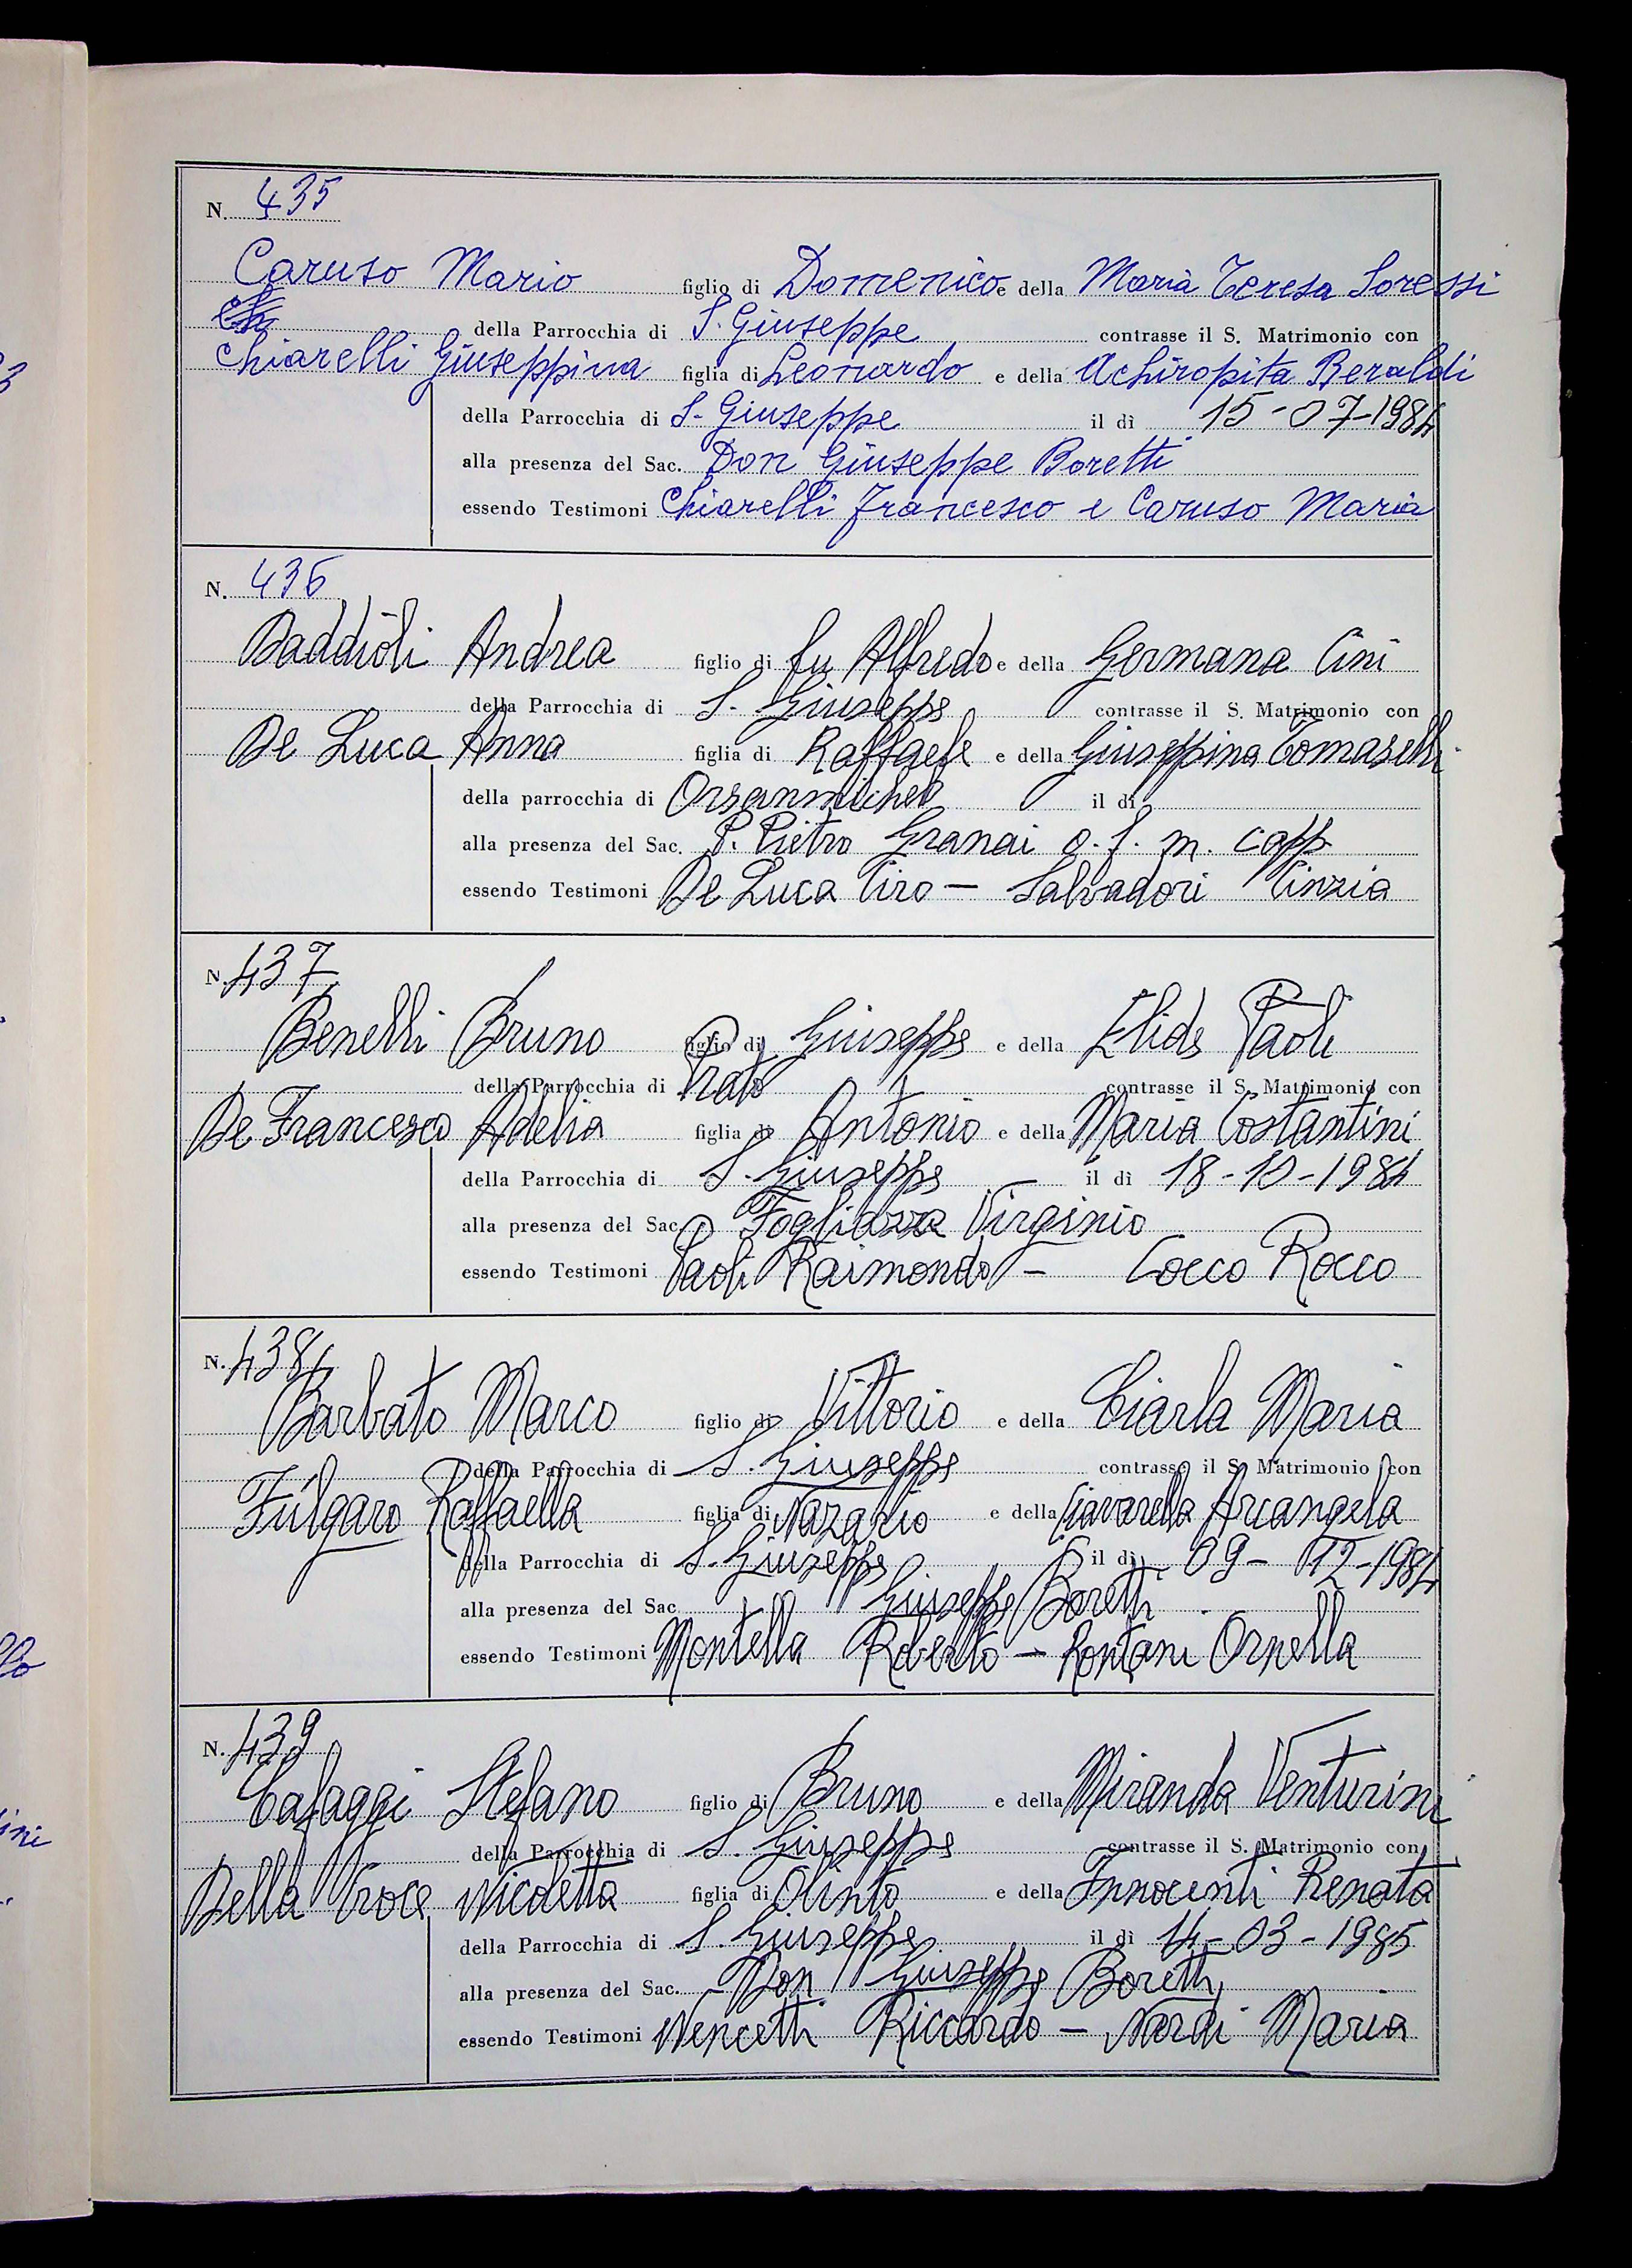 N. 435
Caruso Mario figlio di Domenico e della Maria Teresa Soressi
della Parrocchia di S. Giuseppe contrasse il S. Matrimonio con
Chiarelli Giuseppina figlia di Leonardo e della Achiropita Beraldi
della Parrocchia di S. Giuseppe il dì 15-07-1984
alla presenza del Sac. Don Giuseppe Boretti
essendo Testimoni Chiarelli Francesco e Caruso Maria
N. 436
Daddioli Andrea figlio di fu Alfredo e della Germana Cini
della Parrocchia di S. Giuseppe contrasse il S. Matrimonio con
De Luca Anna figlia di Raffaele e della Giuseppina Tomaselli
della parrocchia di Orsanmichele il dì
alla presenza del Sac. P. Pietro Granai o.f.m. capp
essendo Testimoni De Luca Ciro - Salvadori Cinzia
N. 437
Benelli Bruno figlio di Giuseppe e della Elide Paoli
della Parrocchia di Prato contrasse il S. Matrimonio con
De Francesco Adelia figlia di Antonio e della Maria Costantini
della Parrocchia di S. Giuseppe il dì 18-10-1984
alla presenza del Sac. Fogliazza Virginio
essendo Testimoni Paoli Raimondo - Cocco Rocco
N. 438
Barbato Marco figlio di Vittorio e della Ciarla Maria
della Parrocchia di S. Giuseppe contrasse il S. Matrimonio con
Fulgaro Raffaella figlia di Nazario e della Ciavarella Arcangela
della Parrocchia di S. Giuseppe il dì 09-12-1984
alla presenza del Sac. Giuseppe Boretti
essendo Testimoni Montella Roberto - Rontani Ornella
N. 439
Cafaggi Stefano figlio di Bruno e della Miranda Venturini
della Parrocchia di S. Giuseppe contrasse il S. Matrimonio con
Della Croce Nicoletta figlia di Olinto e della Innocenti Renata
della Parrocchia di S. Giuseppe il dì 14-03-1985
alla presenza del Sac. Don Giuseppe Boretti
essendo Testimoni Nencetti Riccardo - Nardi Maria